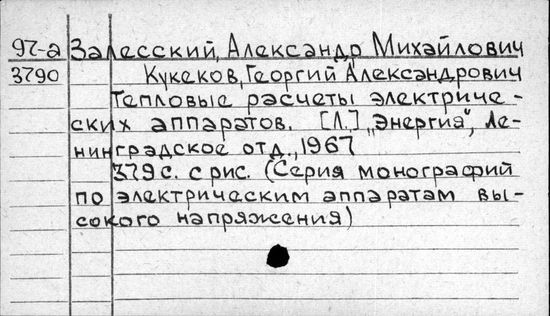 97-а Залесский, Александр Михайлович
3790 Кукеков, Георгий Александрович
Тепловые расчеты электриче-
ских аппаратов. [Л.] „Энергия", Ле-
нинградское отд., 1967
379 с. с рис. (Серия монографий
по электрическим аппаратам вы-
сокого напряжения)